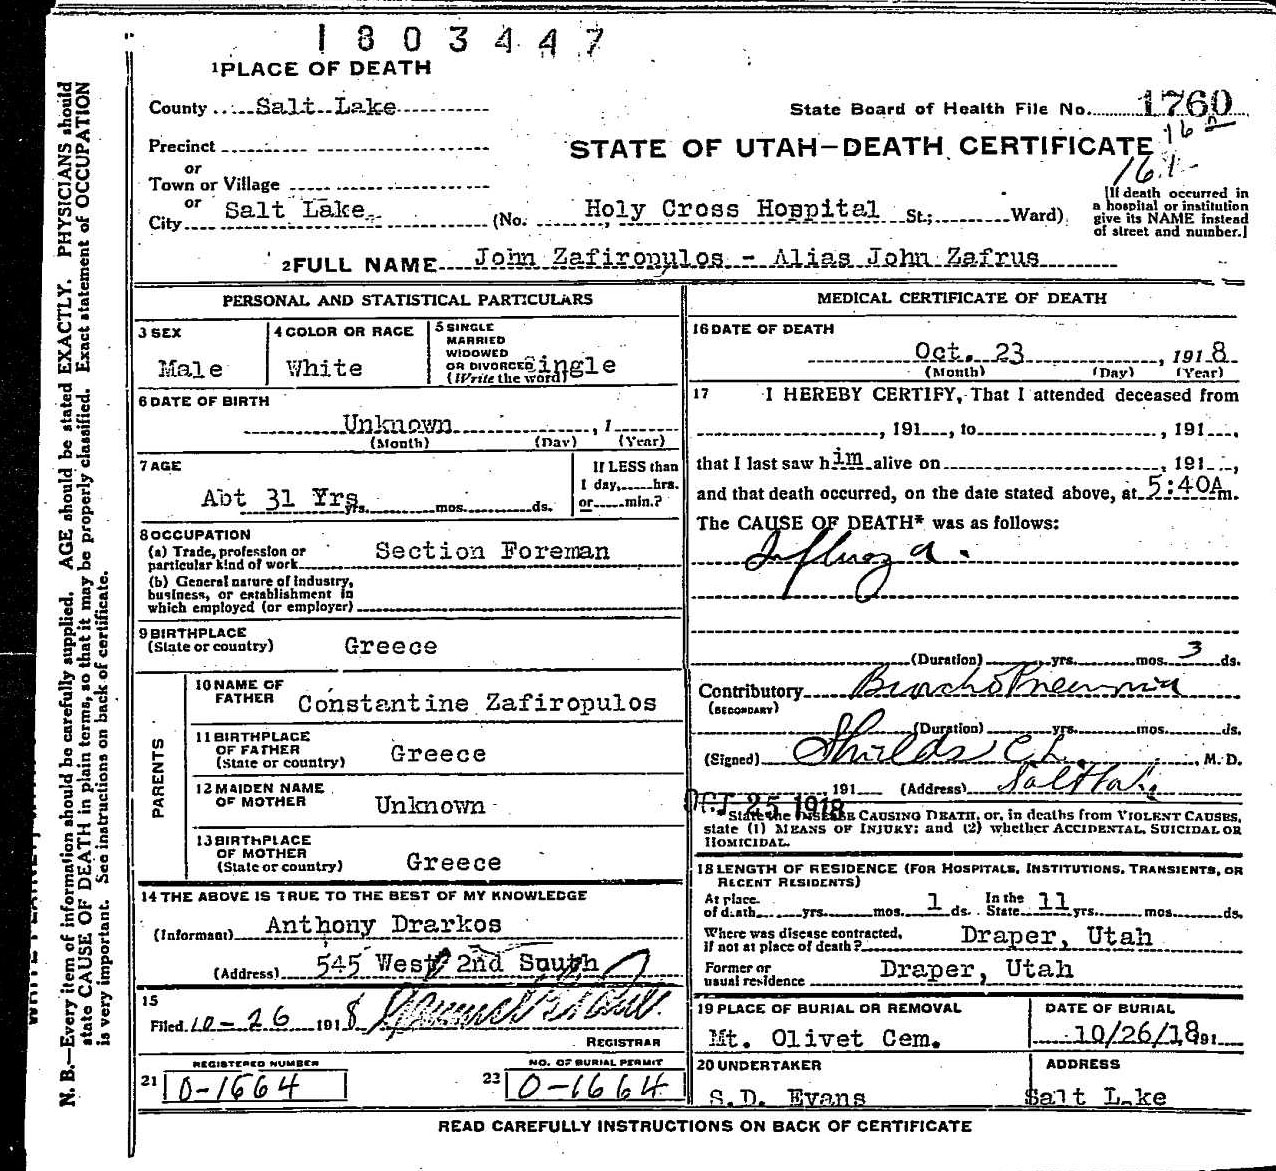 1803447
1PLACE OF DEATH
County Salt Lake
State Board of Health File No. 1760
Precinct
or
Town or Village
or
City Salt Lake (No. Holy Cross Hospital St.; Ward)
STATE OF UTAH—DEATH CERTIFICATE
162
161
[If death occurred in
a hospital or institution
give its NAME instead
of street and number.]
2FULL NAME John Zafiropulos - Alias John Zafrus
PERSONAL AND STATISTICAL PARTICULARS
3 SEX
Male
4 COLOR OR RACE
White
5 SINGLE
MARRIED
WIDOWED
OR DIVORCED Single
(Write the word)
6 DATE OF BIRTH
Unknown , 1
(Month) (Day) (Year)
7 AGE
Abt 31 Yrs yrs. mos. ds.
If LESS than
1 day, hrs.
or min.?
8 OCCUPATION
(a) Trade, profession or
particular kind of work Section Foreman
(b) General nature of industry,
business, or establishment in
which employed (or employer)
9 BIRTHPLACE
(State or country) Greece
PARENTS
10 NAME OF
FATHER Constantine Zafiropulos
11 BIRTHPLACE
OF FATHER
(State or country) Greece
12 MAIDEN NAME
OF MOTHER Unknown
13 BIRTHPLACE
OF MOTHER
(State or country) Greece
14 THE ABOVE IS TRUE TO THE BEST OF MY KNOWLEDGE
(Informant) Anthony Drarkos
(Address) 545 West 2nd South
15
Filed 10-26 1918
REGISTRAR
REGISTERED NUMBER
21 0-1664
NO. OF BURIAL PERMIT
22 0-1664
MEDICAL CERTIFICATE OF DEATH
16 DATE OF DEATH
Oct. 23 , 1918
(Month) (Day) (Year)
17 I HEREBY CERTIFY, That I attended deceased from
, 191 , to , 191 ,
that I last saw him alive on , 191 ,
and that death occurred, on the date stated above, at 5:40A m.
The CAUSE OF DEATH* was as follows:
Influenza.
(Duration) yrs. mos. 3 ds.
Contributory Broncho Pneumonia
(SECONDARY)
(Duration) yrs. mos. ds.
(Signed) Shields C.L. , M. D.
OCT 25 1918 , 191 (Address) Salt Lake
*State the DISEASE CAUSING DEATH, or, in deaths from VIOLENT CAUSES,
state (1) MEANS OF INJURY; and (2) whether ACCIDENTAL, SUICIDAL OR
HOMICIDAL.
18 LENGTH OF RESIDENCE (FOR HOSPITALS, INSTITUTIONS, TRANSIENTS, OR
RECENT RESIDENTS)
At place
of death yrs. mos. 1 ds. In the State 11 yrs. mos. ds.
Where was disease contracted,
if not at place of death? Draper, Utah
Former or
usual residence Draper, Utah
19 PLACE OF BURIAL OR REMOVAL
Mt. Olivet Cem.
DATE OF BURIAL
10/26/18 191
20 UNDERTAKER
S.D. Evans
ADDRESS
Salt Lake
READ CAREFULLY INSTRUCTIONS ON BACK OF CERTIFICATE
N. B.—Every item of information should be carefully supplied. AGE should be stated EXACTLY. PHYSICIANS should
state CAUSE OF DEATH in plain terms, so that it may be properly classified. Exact statement of OCCUPATION
is very important. See instructions on back of certificate.